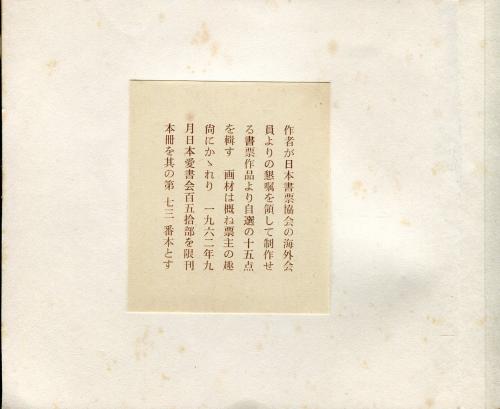 作者が日本書票協会の海外会
員よりの懇嘱を領して制作せ
る書票作品より自選の十五点
を輯す　画材は概ね票主の趣
尚にかゝれり　一九六二年九
月日本愛書会百五拾部を限刊
本冊を其の第 七三 番本とす